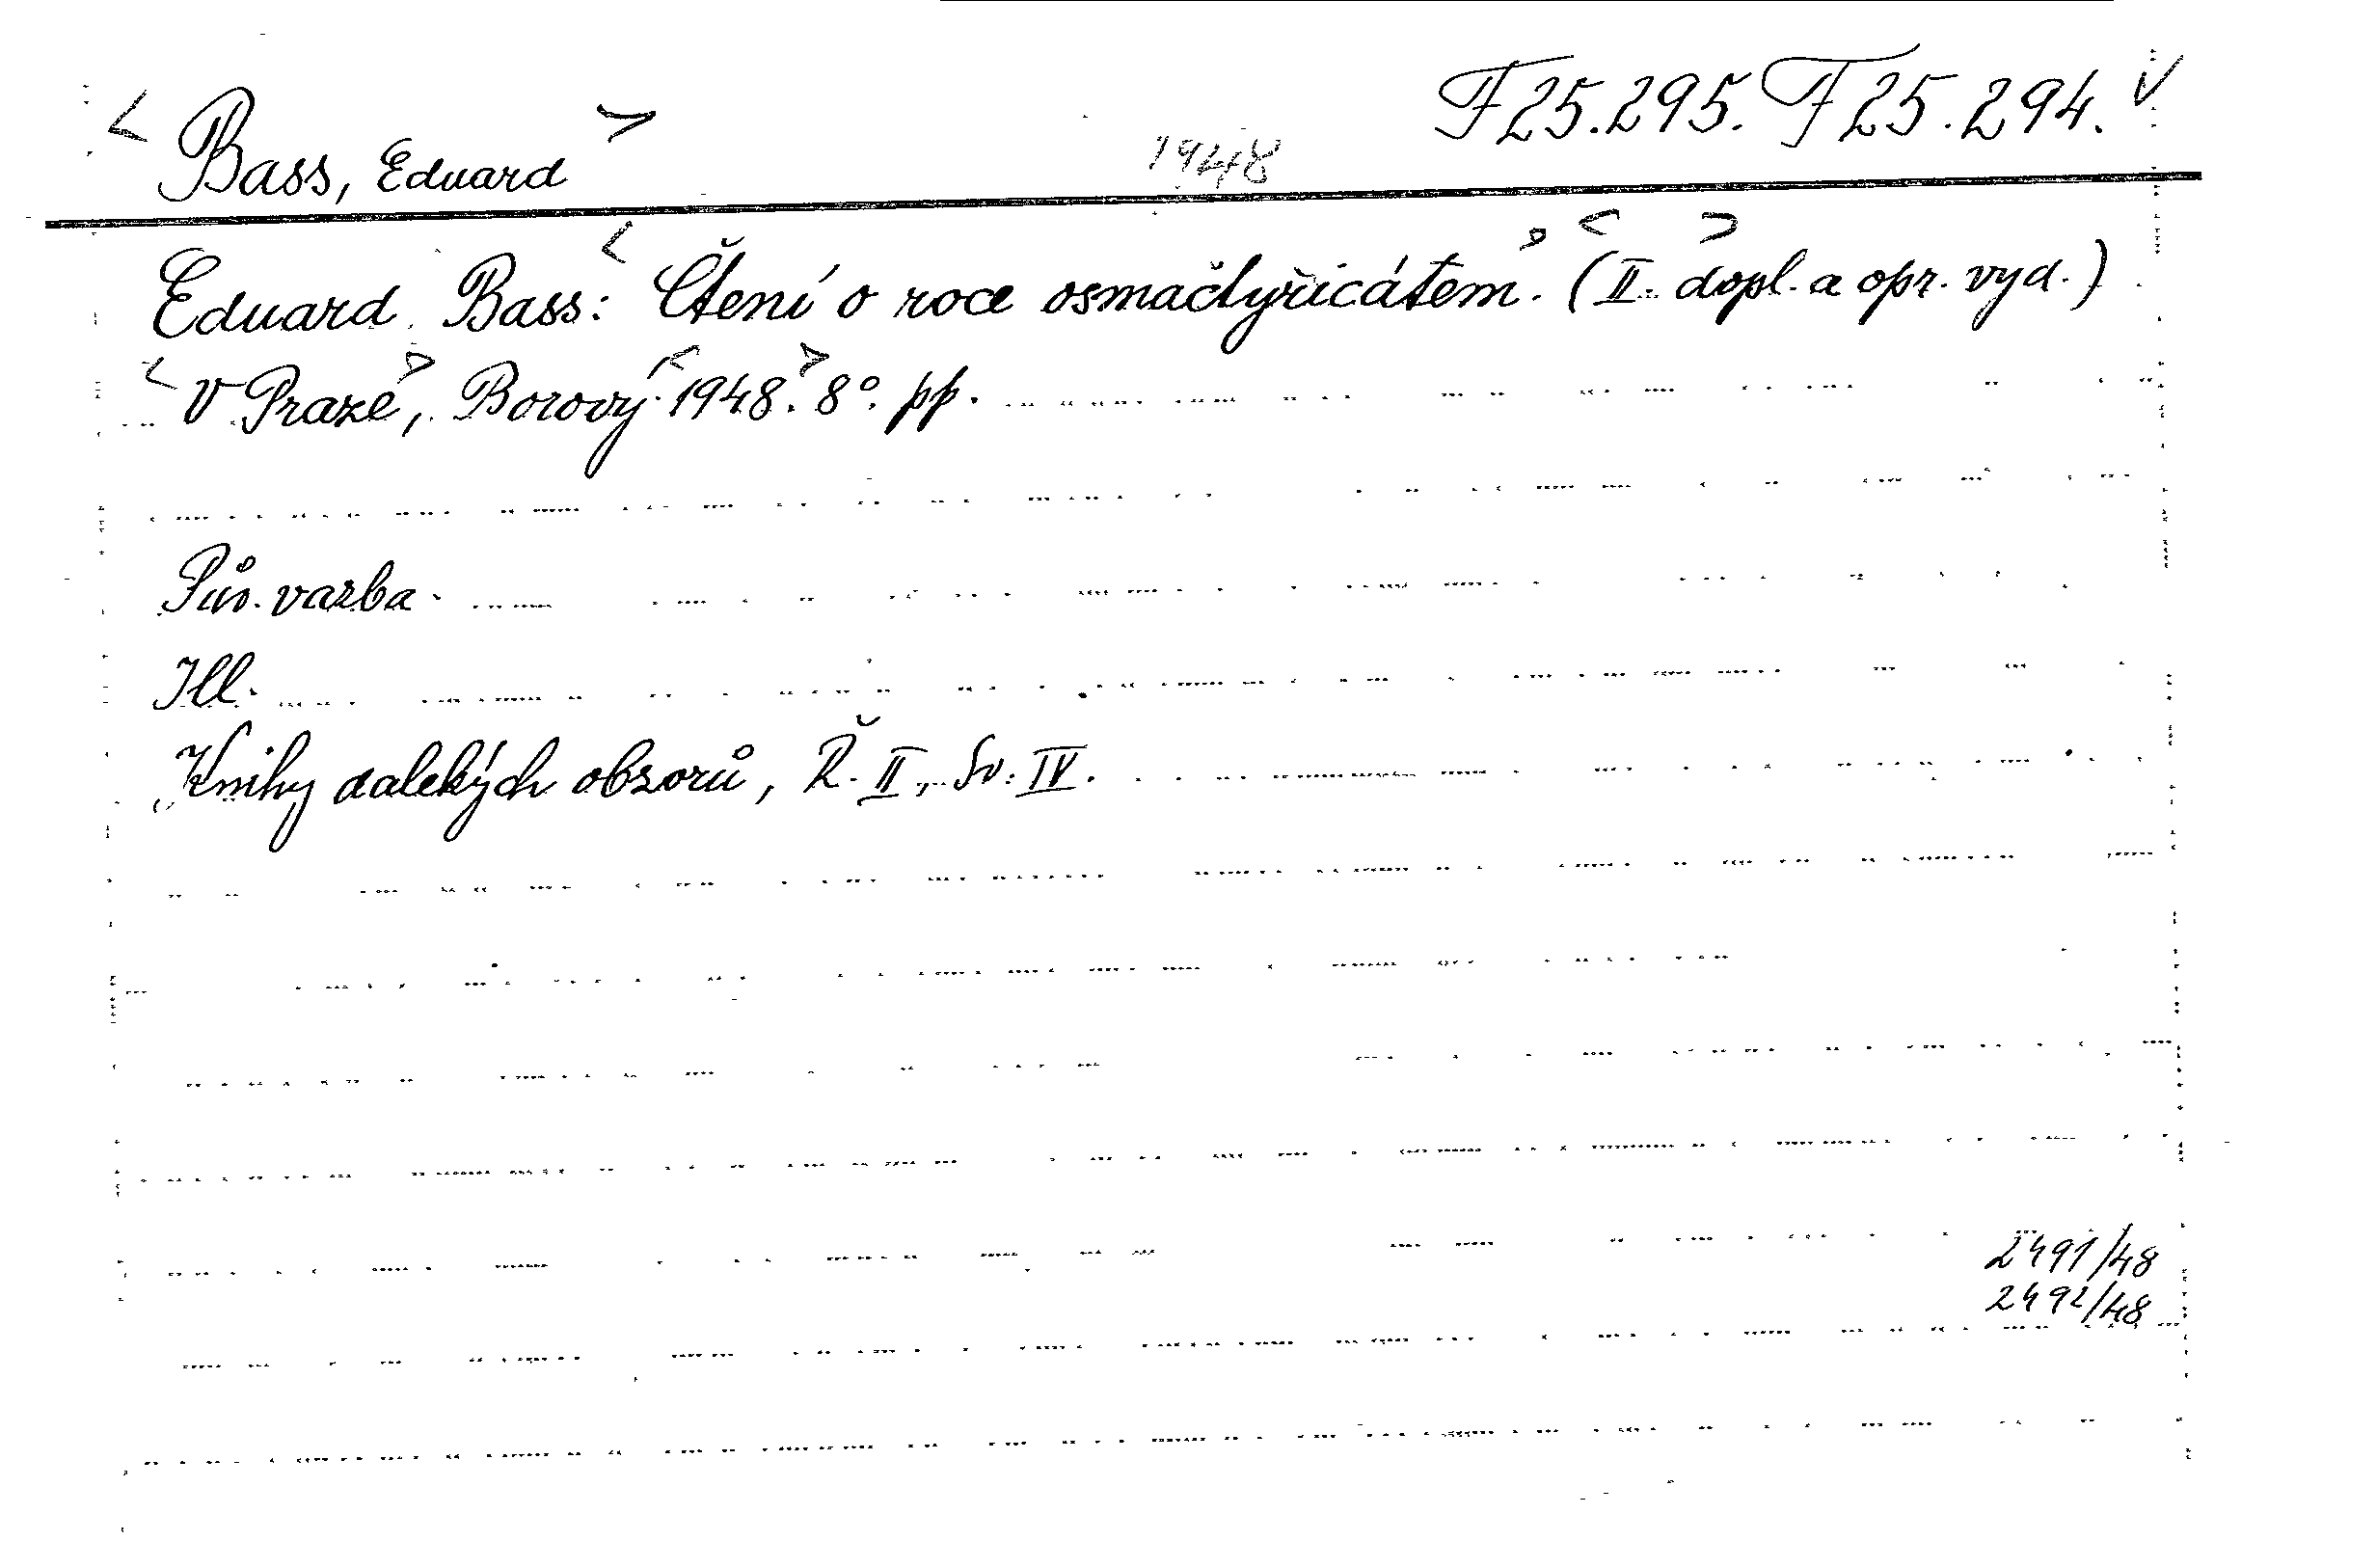 < Bass, Eduard > 1948 F 25.295. F 25.294. √
Eduard Bass: < Čtení o roce osmačtyřicátém. > < (II. > dopl. a opr. vyd.)
< V Praze >, Borový. < 1948. > 8°. pp.
Pův. vazba.
Ill.
Knihy dalekých obzorů, Ř. II, Sv. IV.
2491/48
2492/48